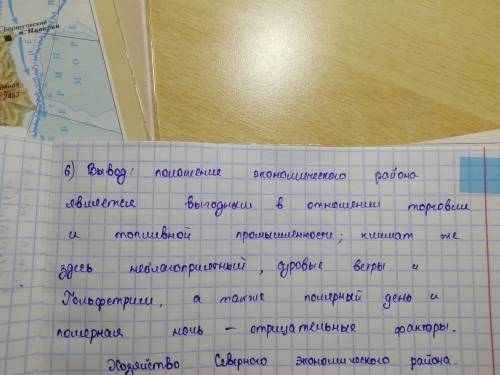 Беринговский
м. Наварин
БЕРИНГ
МОРЕ
2453
6) Вывод: положение экономического района
является выгодным в отношении торговли
и топливной промышленности; климат же
здесь неблагоприятный, суровые ветры и
Гольфстрим, а также полярный день и
полярная ночь – отрицательные факторы.
Хозяйство Северного экономического района.